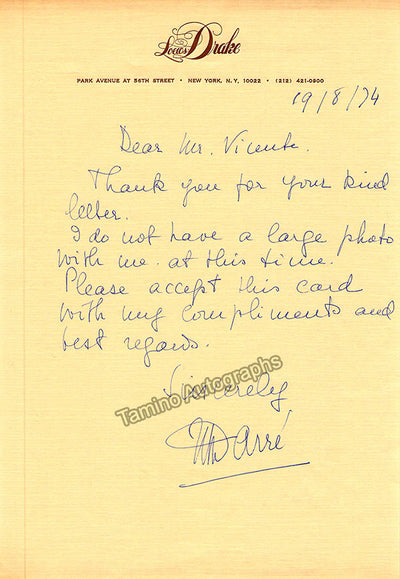 Loews Drake
PARK AVENUE AT 56TH STREET • NEW YORK, N.Y. 10022 • (212) 421-0900
19/8/74
Dear Mr. Vicente.
Thank you for your kind
letter.
I do not have a large photo
with me at this time.
Please accept this card
with my compliments and
best regards.
Sincerely
Tamino Autographs
Darré